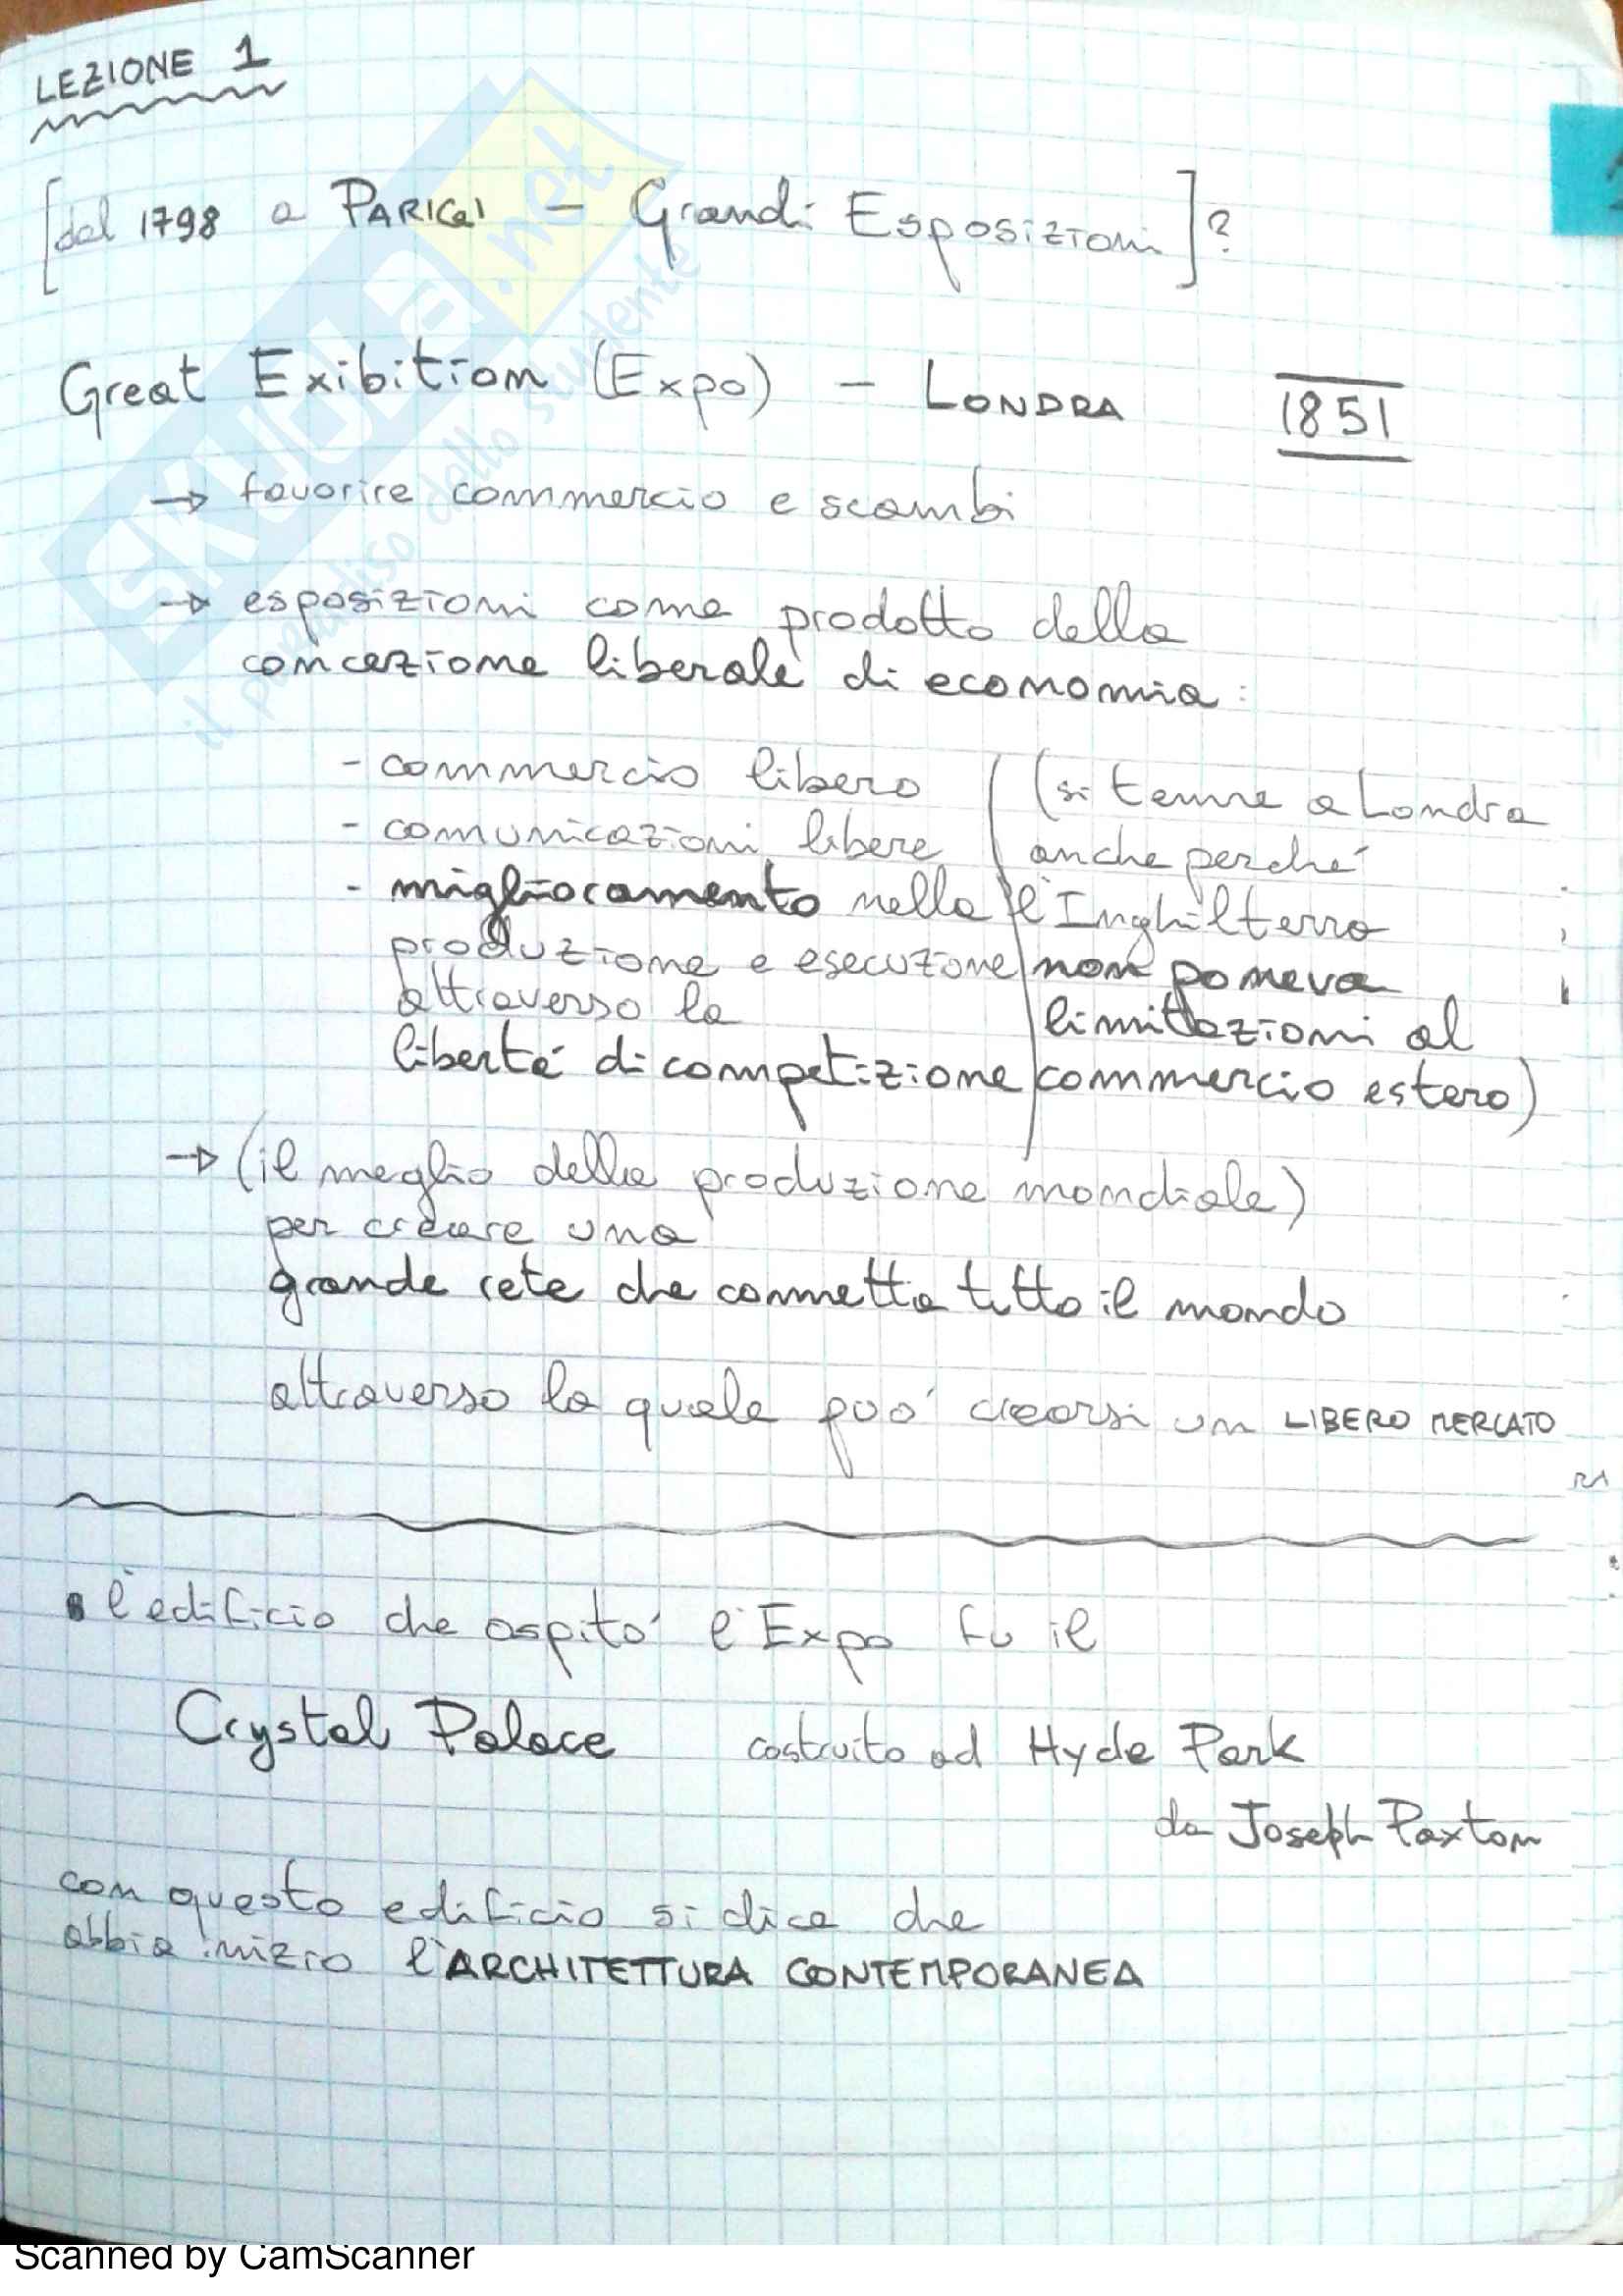 LEZIONE 1
[dal 1798 a PARIGI – Grandi Esposizioni]?
Great Exibition (Expo) – LONDRA 1851
→ favorire commercio e scambi
→ esposizioni come prodotto della
concezione liberale di economia:
- commercio libero
- comunicazioni libere
- miglioramento nella
produzione e esecuzione
attraverso la
libertá di competizione
(si tenne a Londra
anche perché
l'Inghilterra
non poneva
limitazioni al
commercio estero)
→ (il meglio della produzione mondiale)
per creare una
grande rete che connetta tutto il mondo
attraverso la quale puó crearsi un LIBERO MERCATO
• l'edificio che ospitó l'Expo fu il
Crystal Palace costruito ad Hyde Park
da Joseph Paxton
con questo edificio si dice che
abbia inizio l'ARCHITETTURA CONTEMPORANEA
SKUOLA.net
il paradiso dello studente
Scanned by CamScanner